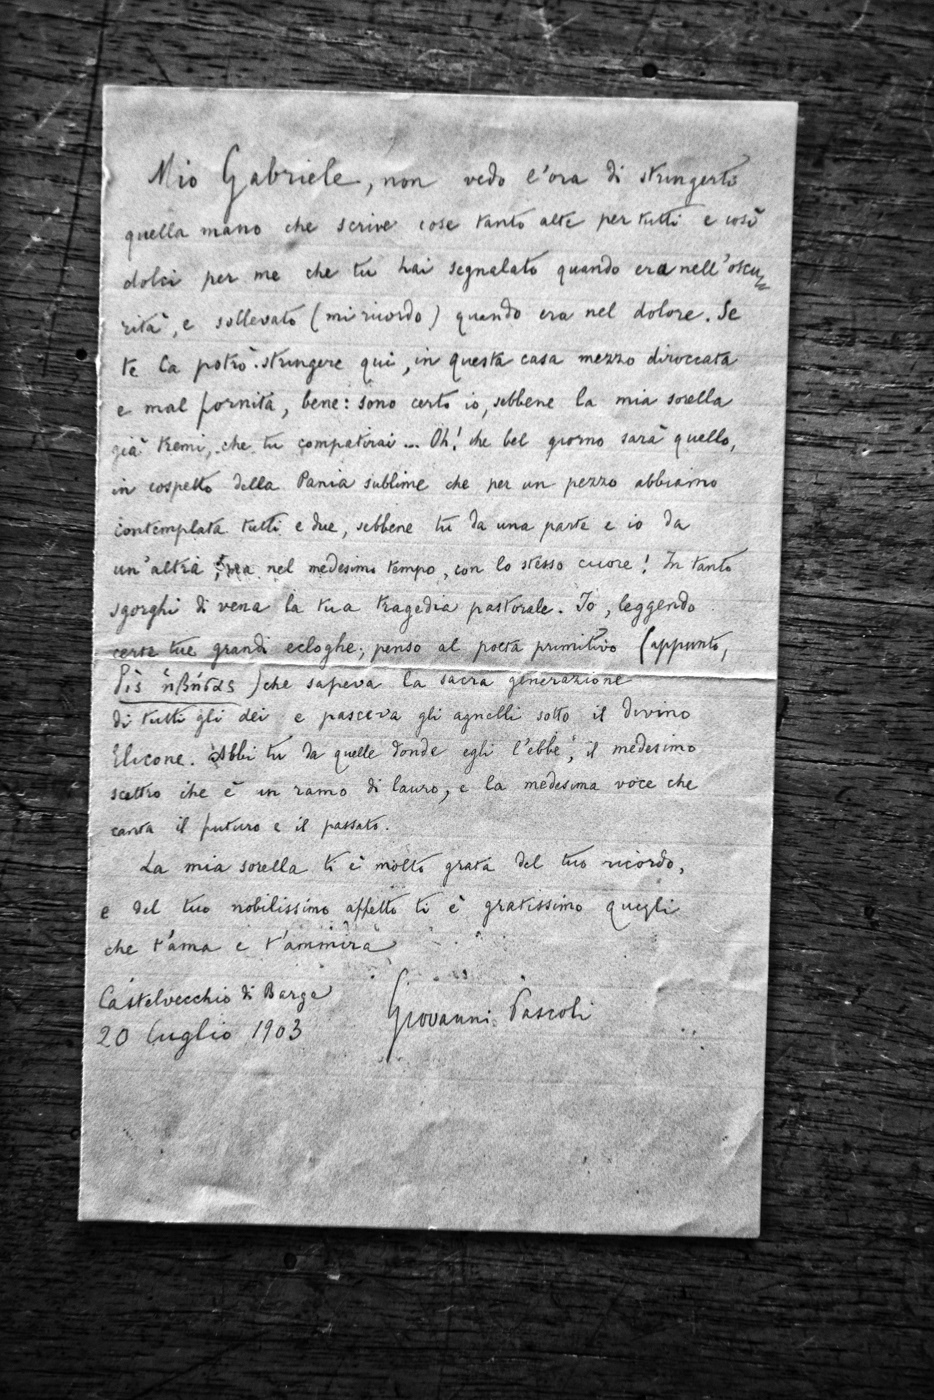 Mio Gabriele, non vedo l'ora di stringerti
quella mano che scrive cose tanto alte per tutti e così
dolci per me che tu hai segnalato quando era nell'oscu=
rità, e sollevato (mi ricordo) quando era nel dolore. Se
te la potrò stringere qui, in questa casa mezzo diroccata
e mal fornita, bene: sono certo io, sebbene la mia sorella
già tremi, che tu compatirai... Oh! che bel giorno sarà quello,
in cospetto della Pania sublime che per un pezzo abbiamo
contemplata tutti e due, sebbene tu da una parte e io da
un'altra, ma nel medesimo tempo, con lo stesso cuore! In tanto
sgorghi di vena la tua tragedia pastorale. Io, leggendo
certe tue grandi ecloghe, penso al poeta primitivo (appunto,
δὶς ἡβήσας) che sapeva la sacra generazione
di tutti gli dei e pasceva gli agnelli sotto il divino
Elicone. Abbi tu da quelle donde egli l'ebbe, il medesimo
scettro che è un ramo di lauro, e la medesima voce che
canta il futuro e il passato.
La mia sorella ti è molto grata del tuo ricordo,
e del tuo nobilissimo affetto ti è gratissimo quegli
che t'ama e t'ammira
Castelvecchio di Barga Giovanni Pascoli
20 luglio 1903